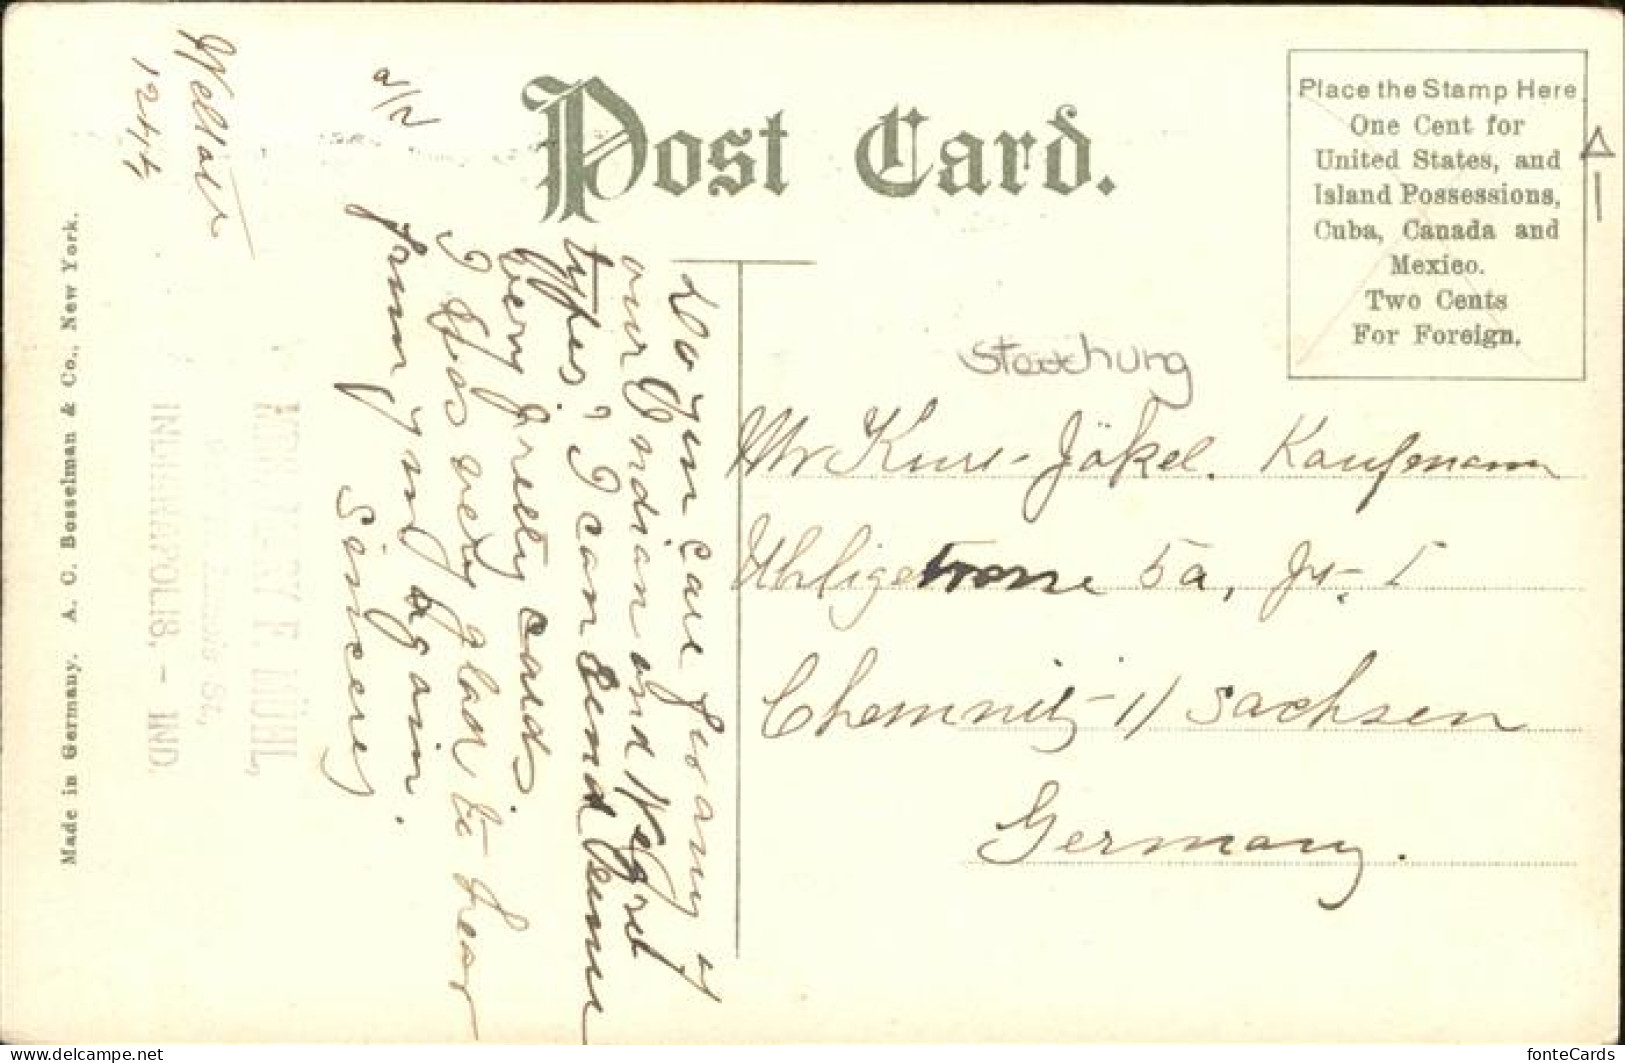 Post Card.
Place the Stamp Here
One Cent for
United States, and
Island Possessions,
Cuba, Canada and
Mexico.
Two Cents
For Foreign.
Mr Kurt Jäkel. Kaufmann
5a,
Chemnitz i/ Sachsen
Germany.
Do you care for any of
our Indian and Negro
types? I can send some
very pretty cards.
I was very glad to hear
from you again.
Sincerely
INDIANAPOLIS, - IND.
Made in Germany. A. C. Bosselman & Co., New York.
fonteCards